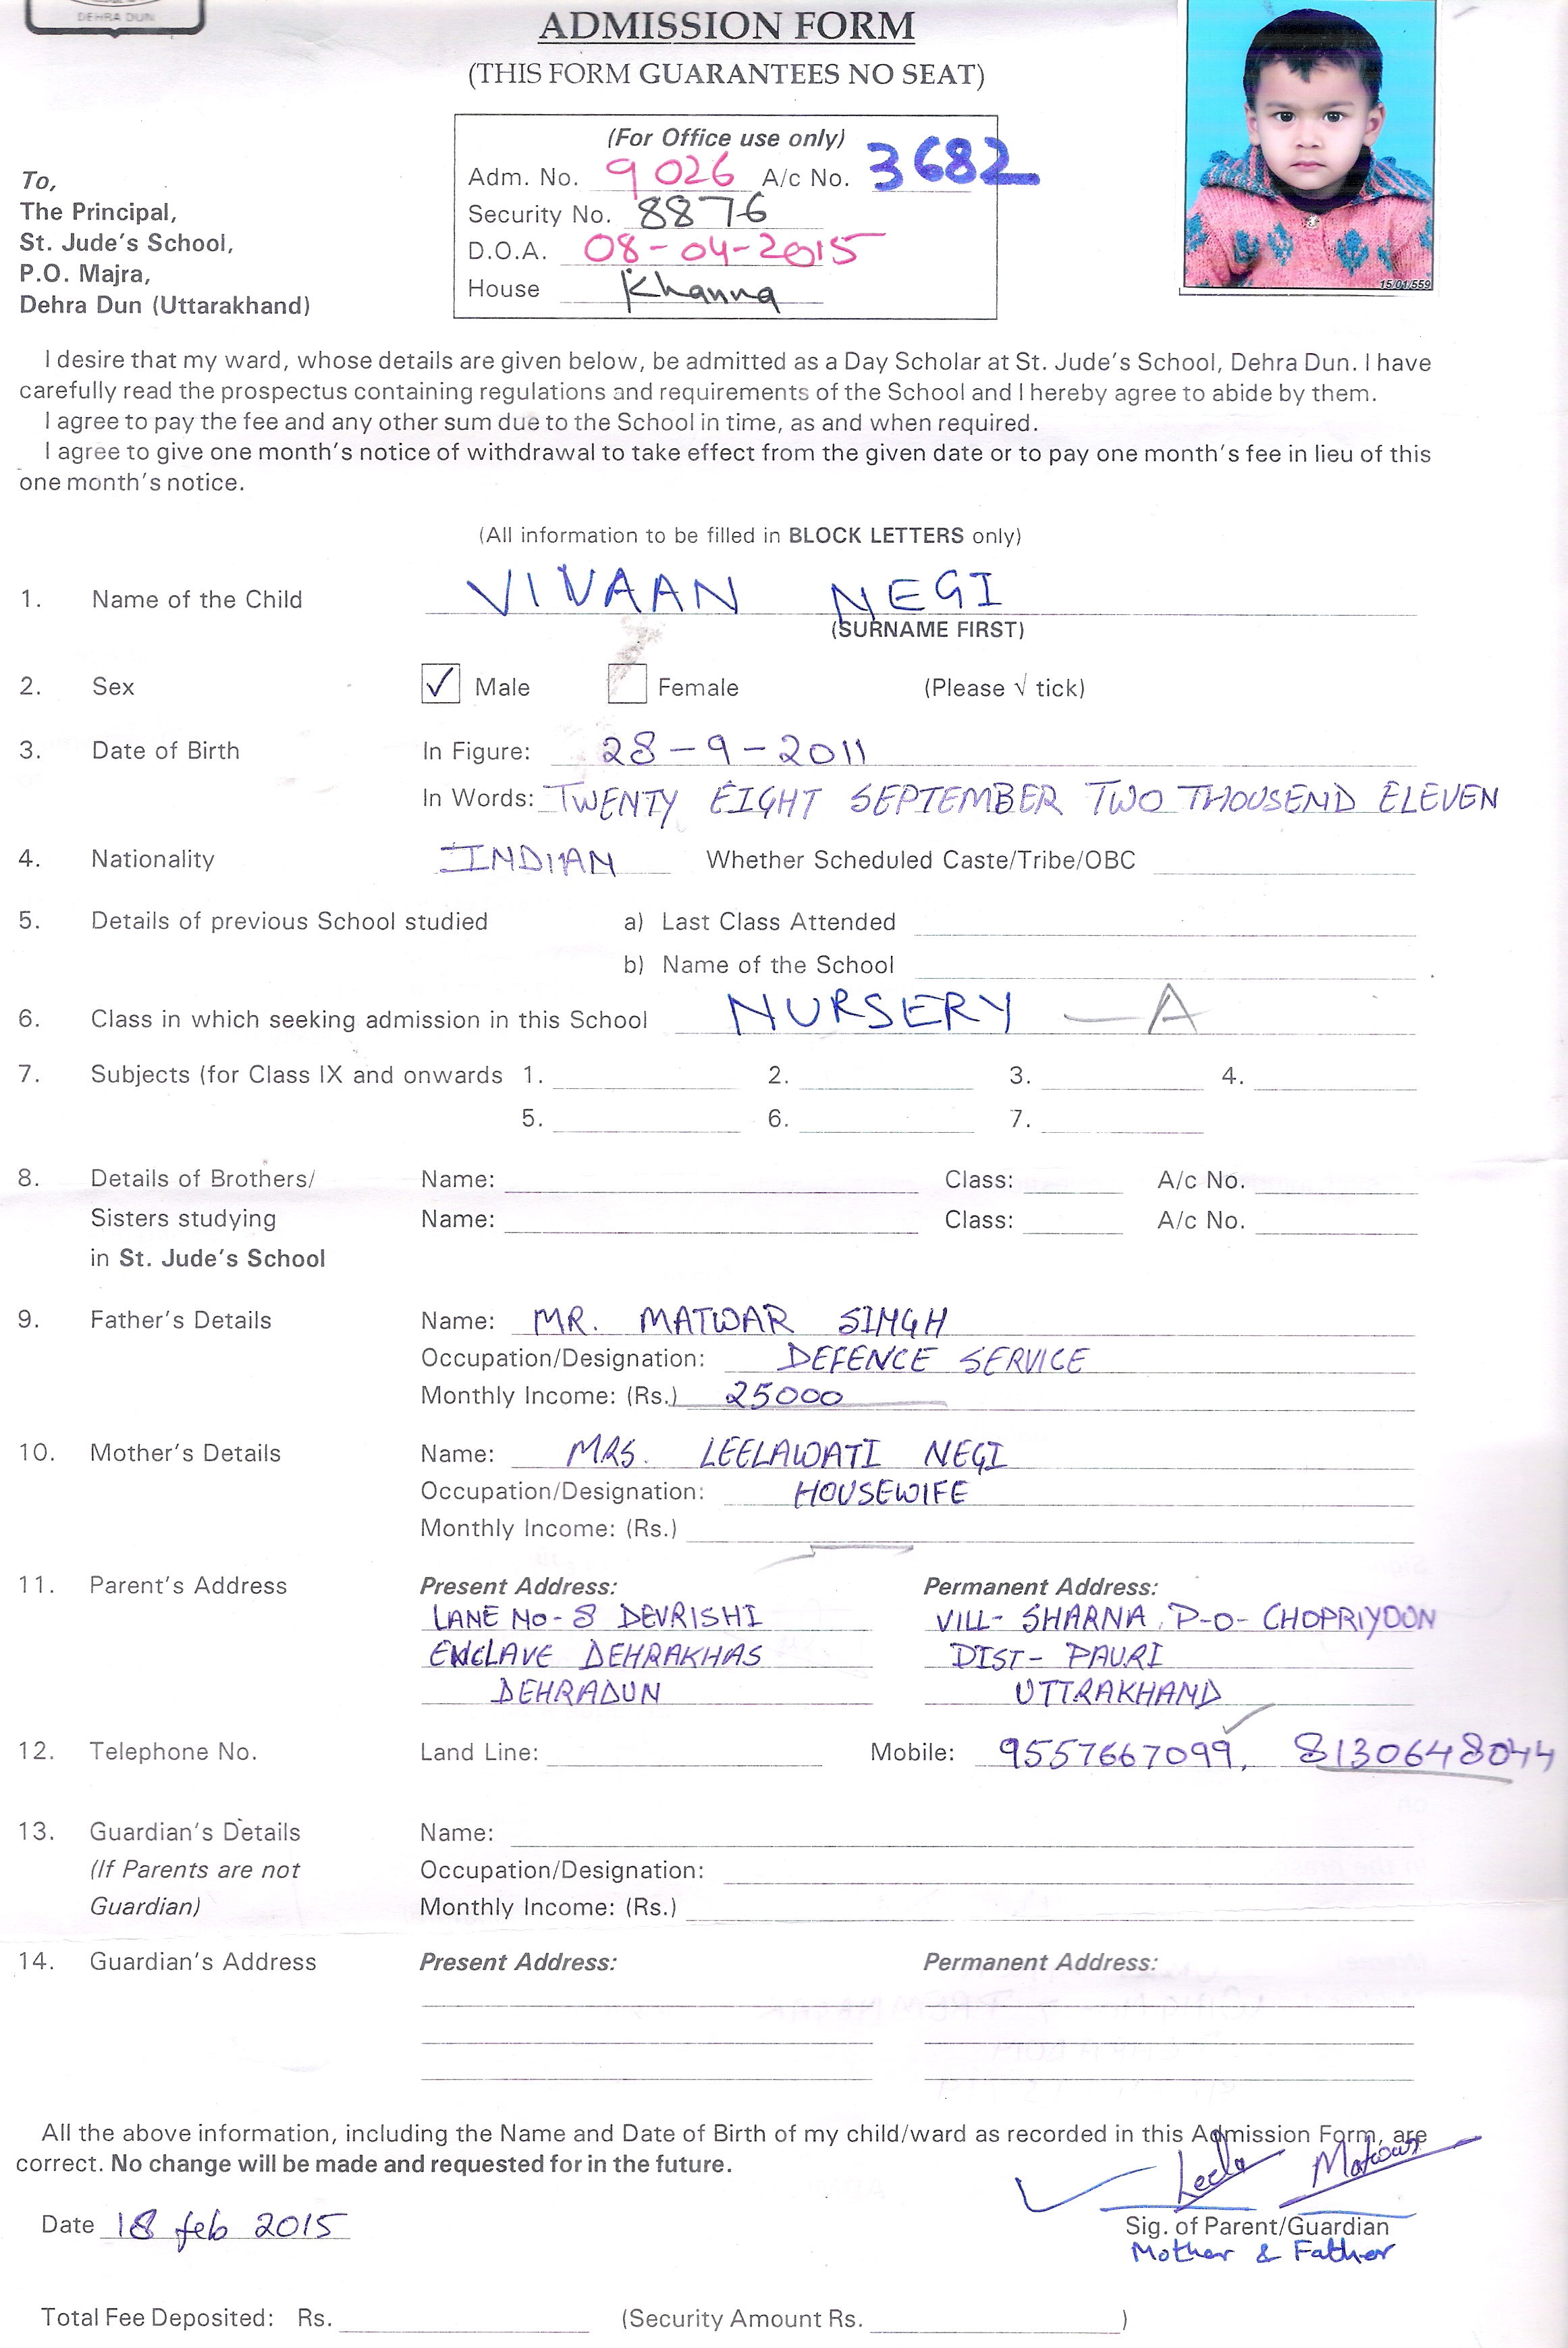 DEHRA DUN
ADMISSION FORM
(THIS FORM GUARANTEES NO SEAT)
(For Office use only)
Adm. No. 9026 A/c No. 3682
Security No. 8876
D.O.A. 08-04-2015
House Khanna
15/01/559
To,
The Principal,
St. Jude's School,
P.O. Majra,
Dehra Dun (Uttarakhand)
I desire that my ward, whose details are given below, be admitted as a Day Scholar at St. Jude's School, Dehra Dun. I have
carefully read the prospectus containing regulations and requirements of the School and I hereby agree to abide by them.
I agree to pay the fee and any other sum due to the School in time, as and when required.
I agree to give one month's notice of withdrawal to take effect from the given date or to pay one month's fee in lieu of this
one month's notice.
(All information to be filled in BLOCK LETTERS only)
1. Name of the Child VIVAAN NEGI
(SURNAME FIRST)
2. Sex ✓ Male Female (Please √ tick)
3. Date of Birth In Figure: 28-9-2011
In Words: TWENTY EIGHT SEPTEMBER TWO THOUSEND ELEVEN
4. Nationality INDIAN Whether Scheduled Caste/Tribe/OBC
5. Details of previous School studied a) Last Class Attended
b) Name of the School
6. Class in which seeking admission in this School NURSERY - A
7. Subjects (for Class IX and onwards 1. 2. 3. 4.
5. 6. 7.
8. Details of Brothers/ Name: Class: A/c No.
Sisters studying Name: Class: A/c No.
in St. Jude's School
9. Father's Details Name: MR. MATWAR SINGH
Occupation/Designation: DEFENCE SERVICE
Monthly Income: (Rs.) 25000
10. Mother's Details Name: MRS. LEELAWATI NEGI
Occupation/Designation: HOUSEWIFE
Monthly Income: (Rs.)
11. Parent's Address Present Address: Permanent Address:
LANE NO-8 DEVRISHI VILL- SHARNA P-O- CHOPRIYOON
ENCLAVE DEHRAKHAS DIST- PAURI
DEHRADUN UTTRAKHAND
12. Telephone No. Land Line: Mobile: 9557667099, 8130648044
13. Guardian's Details Name:
(If Parents are not Occupation/Designation:
Guardian) Monthly Income: (Rs.)
14. Guardian's Address Present Address: Permanent Address:
All the above information, including the Name and Date of Birth of my child/ward as recorded in this Admission Form, are
correct. No change will be made and requested for in the future.
Leela Matwar
Date 18 feb 2015
Sig. of Parent/Guardian
Mother & Father
Total Fee Deposited: Rs. (Security Amount Rs. )